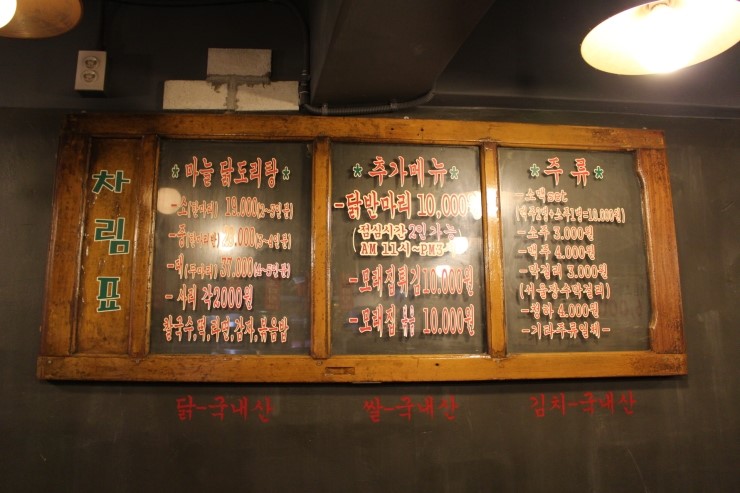 차림표
* 마늘 닭도리탕 *
-소(한마리) 18.000(2~3인분)
-중(한마리반)
-대(두마리) 37.000(4~5인분)
- 사리 각2000원
칼국수,떡,라면,감자,볶음밥
* 추가메뉴 *
-닭반마리 10,000원
(점심시간 2인가능
AM 11시~PM3
-모래집튀김10.000원
-모래집 볶음 10.000원
* 주 류 *
-소맥set
(맥주2병+소주1병=10.000원)
-소주 3.000원
-맥주 4.000원
-막걸리 3.000원
(서울장수막걸리)
-청하 4.000원
-기타주류일체-
닭-국내산
쌀-국내산
김치-국내산